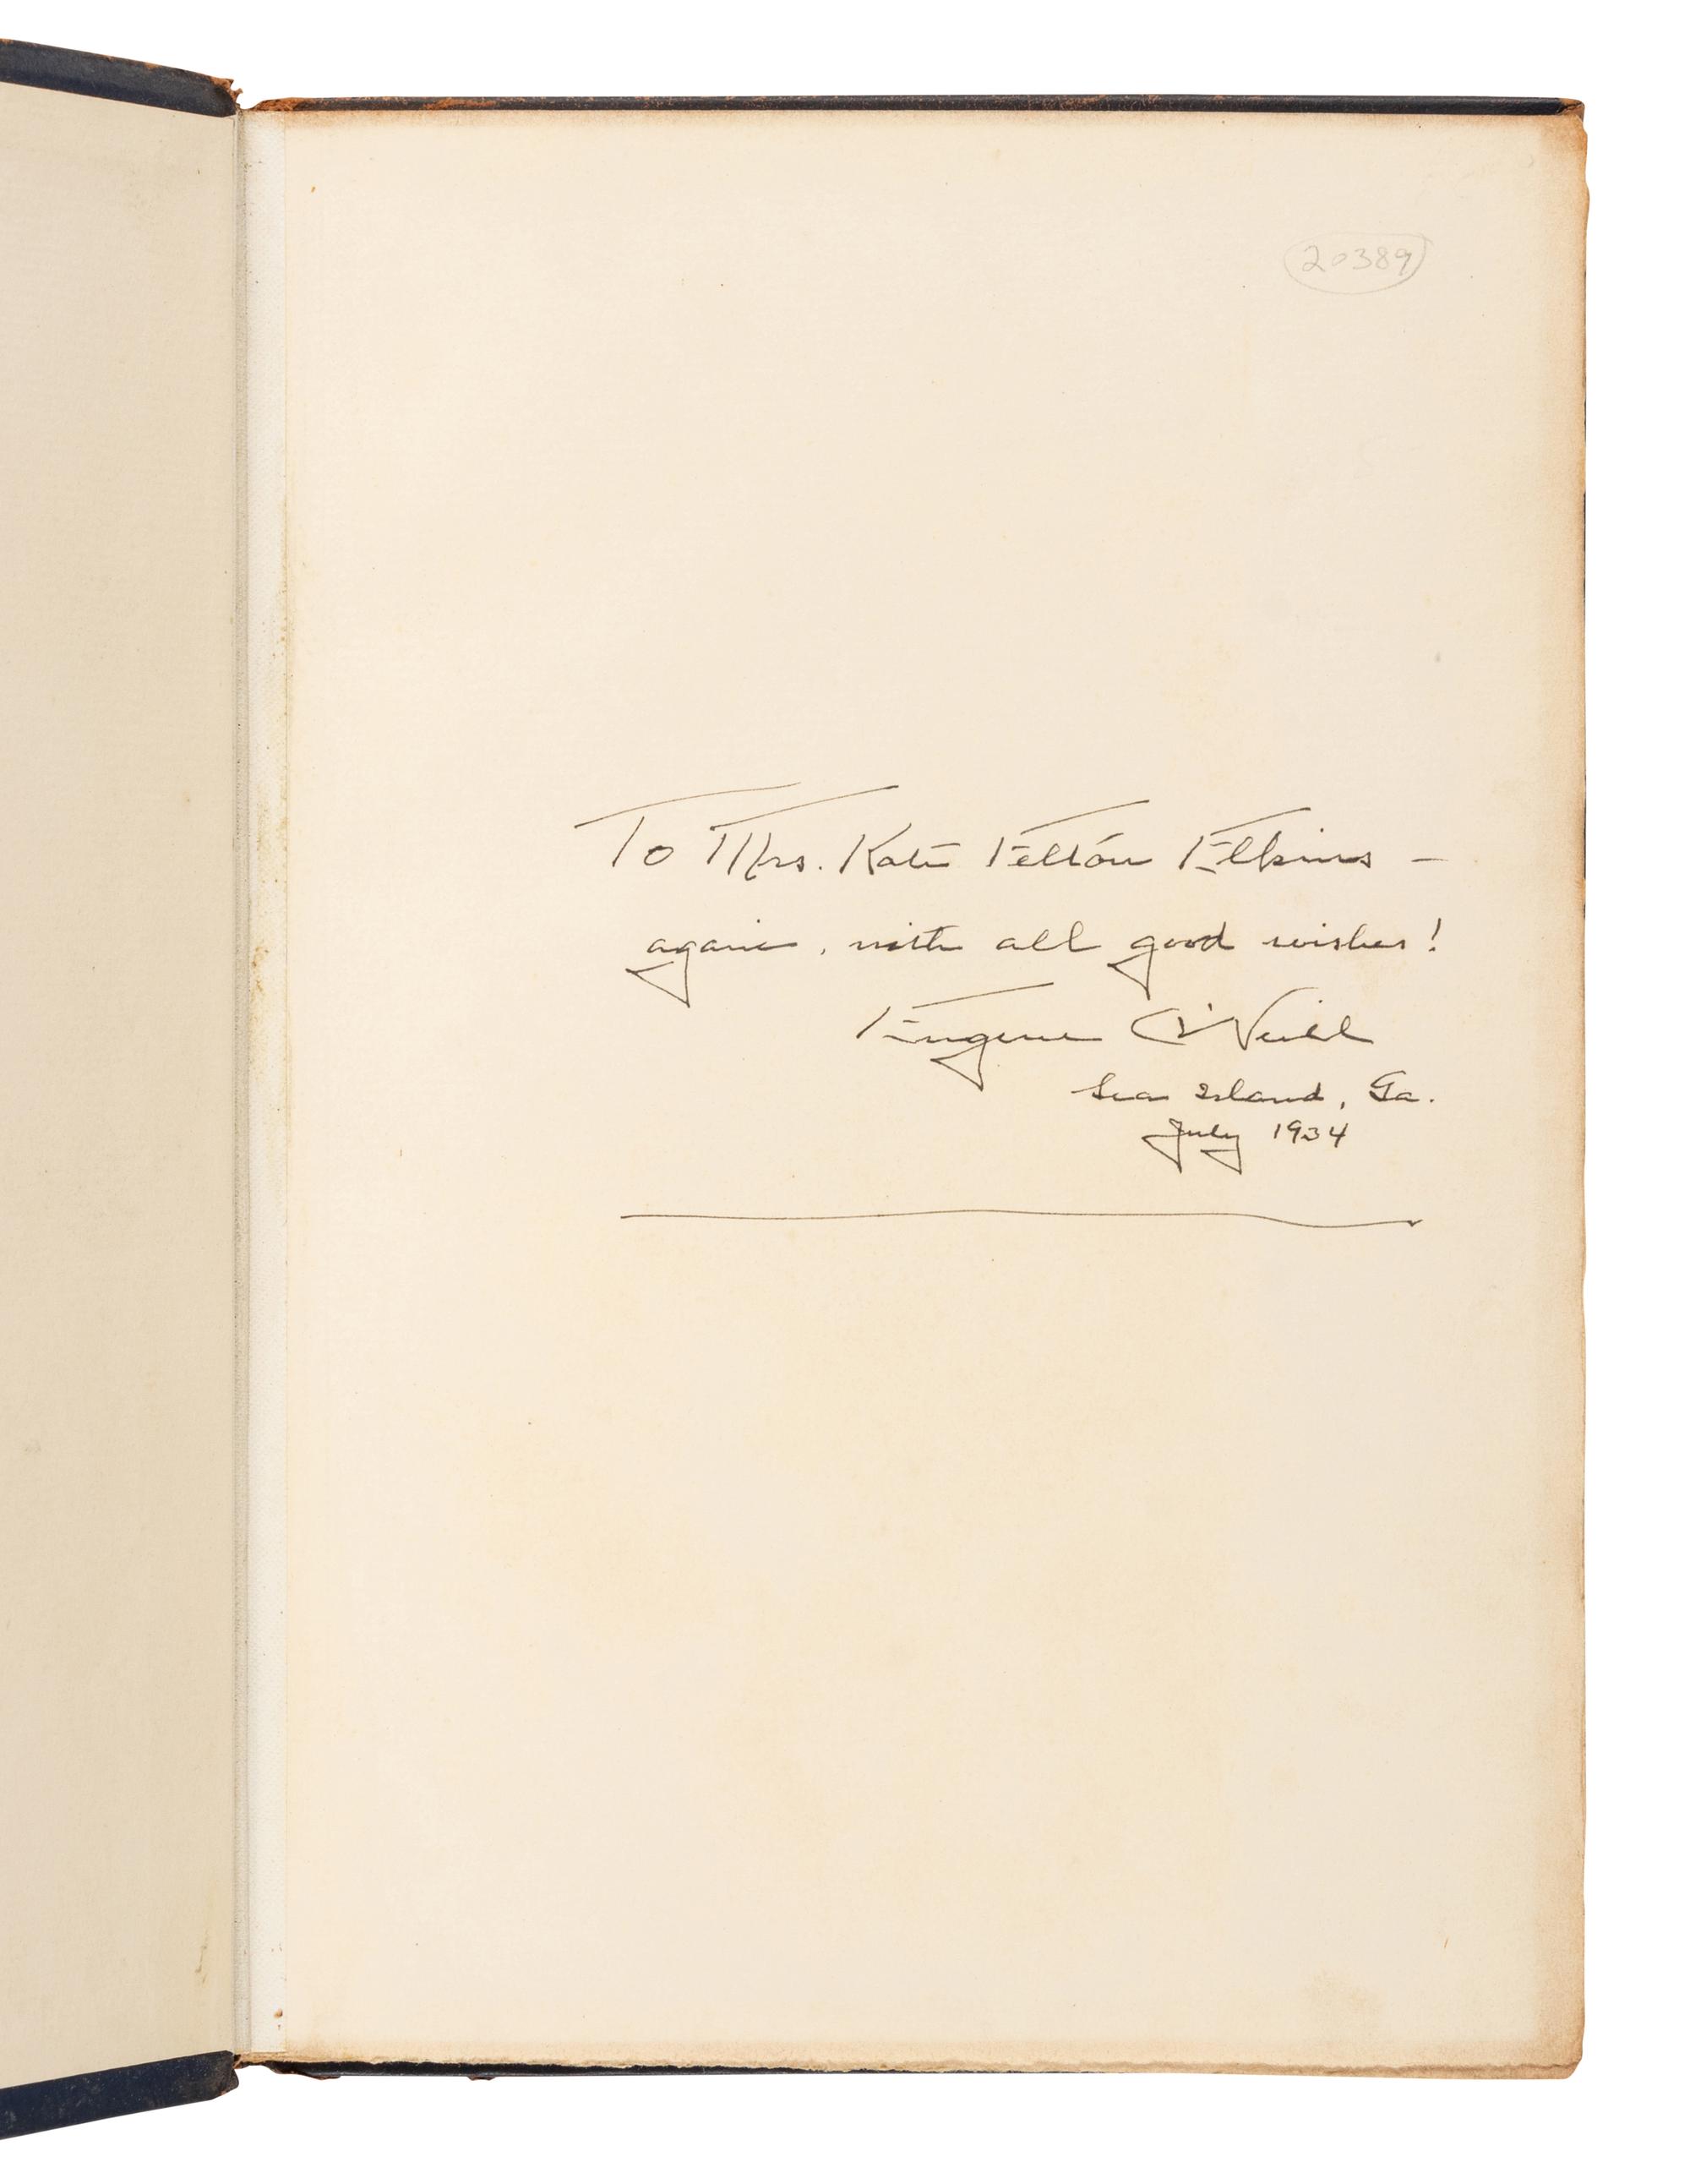 20389
To Mrs. Kate Felton Elkins –
again, with all good wishes!
Eugene O'Neill
Sea Island, Ga.
July 1934